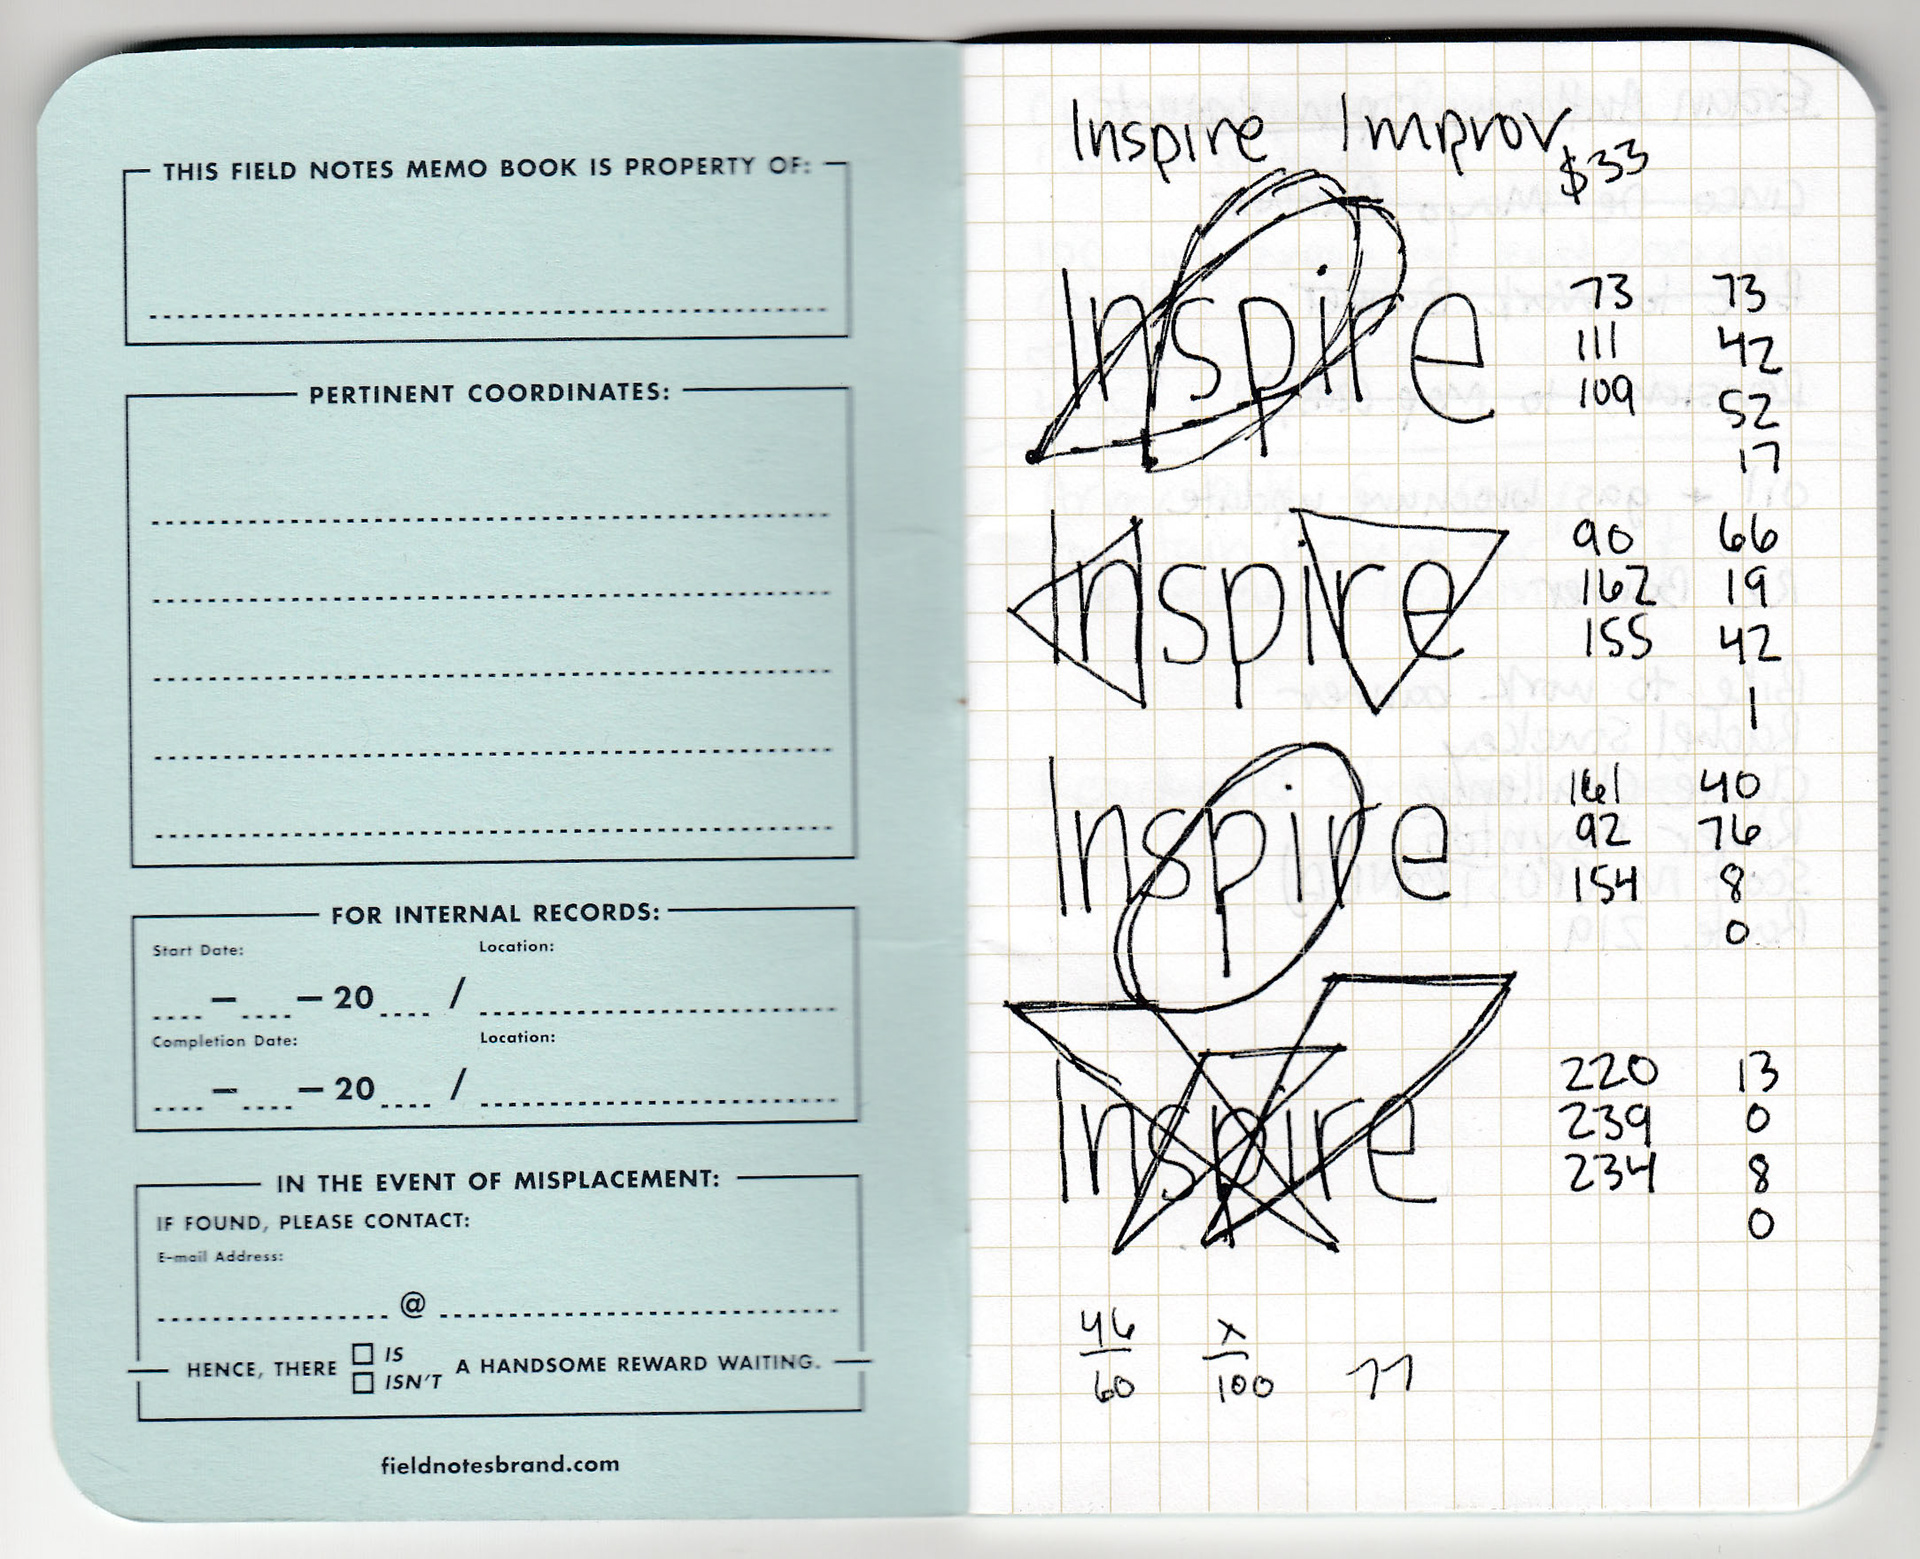 THIS FIELD NOTES MEMO BOOK IS PROPERTY OF:
PERTINENT COORDINATES:
FOR INTERNAL RECORDS:
Start Date: Location:
– – 20 /
Completion Date: Location:
– – 20 /
IN THE EVENT OF MISPLACEMENT:
IF FOUND, PLEASE CONTACT:
E-mail Address:
@
HENCE, THERE IS A HANDSOME REWARD WAITING.
ISN'T
fieldnotesbrand.com
Inspire Improv
$33
Inspire
73 73
111 42
109 52
17
Inspire
90 66
162 19
155 42
1
Inspire
161 40
92 76
154 8
0
Inspire
220 13
239 0
234 8
0
46 x
60 100 77